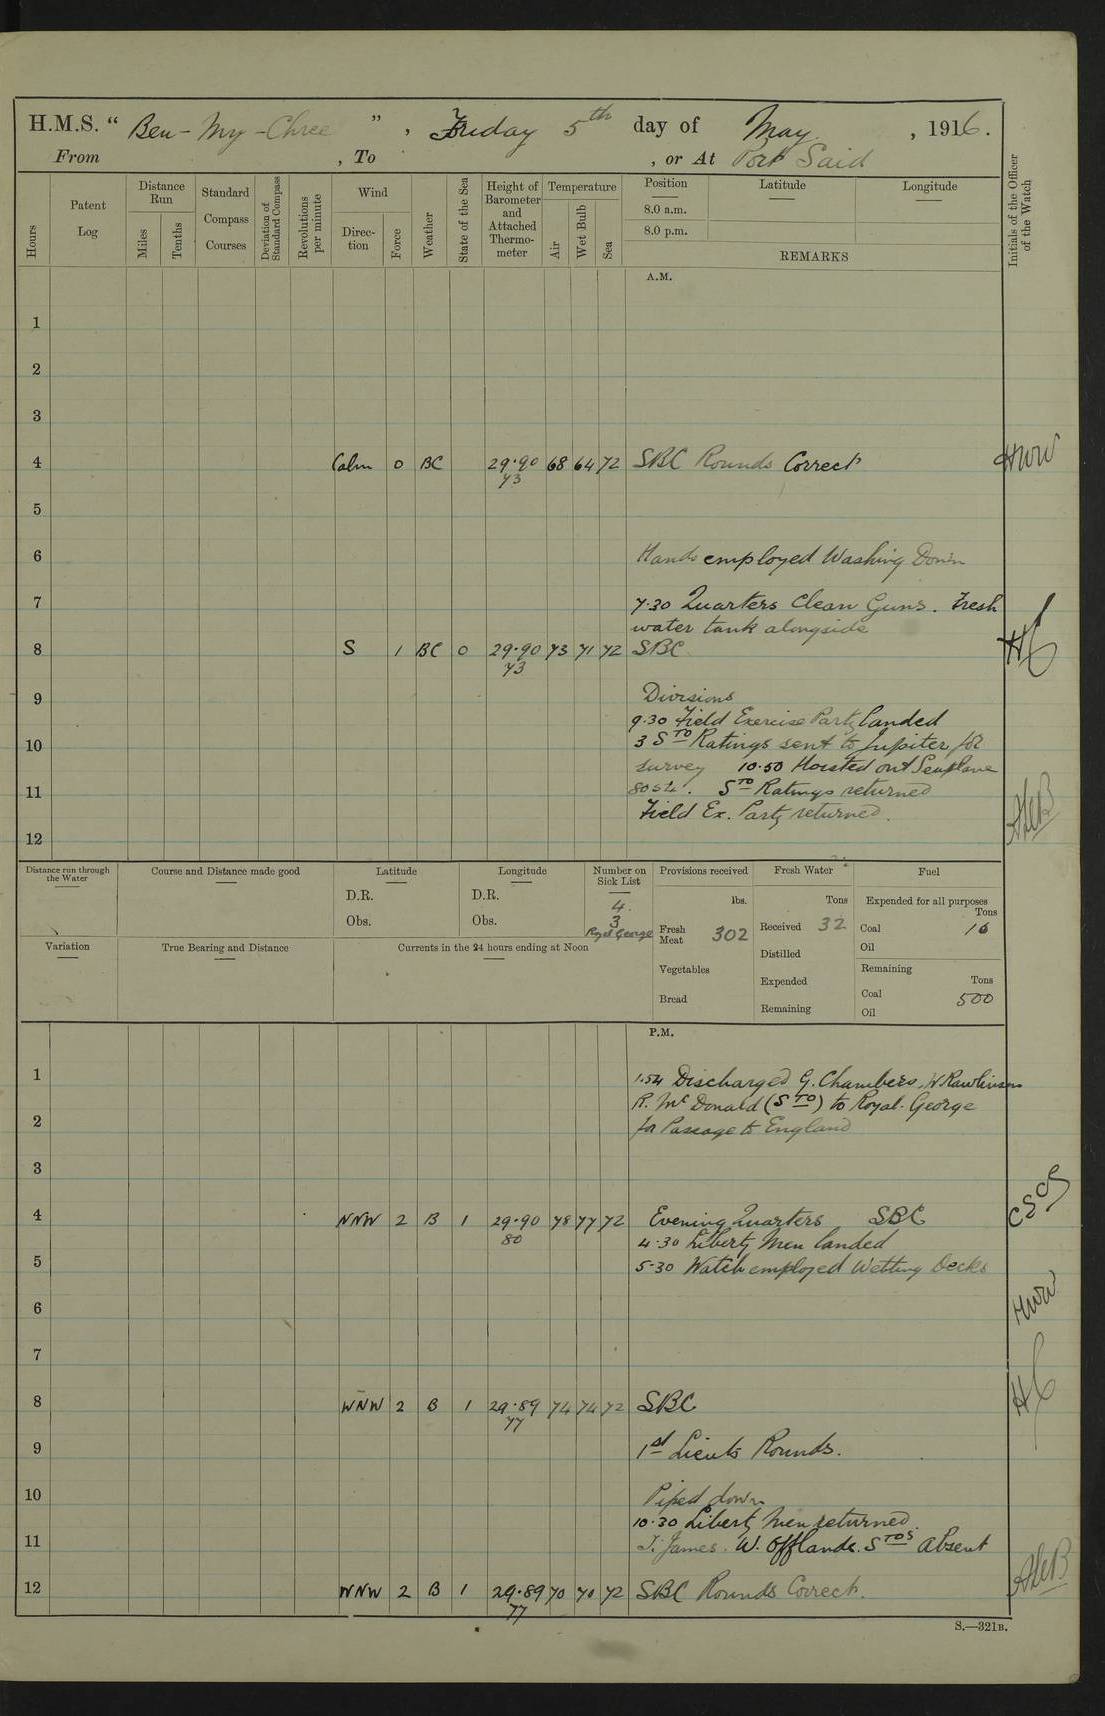 H.M.S. " Ben-My-Chree " , Friday 5th day of May , 1916.
From , To , or At Port Said
Hours
Patent Log
Distance Run
Miles
Tenths
Standard Compass Courses
Deviation of Standard Compass
Revolutions per minute
Wind
Direction
Force
Weather
State of the Sea
Height of Barometer and Attached Thermometer
Temperature
Air
Wet Bulb
Sea
Position
8.0 a.m.
8.0 p.m.
Latitude
Longitude
REMARKS
Initials of the Officer of the Watch
A.M.
1
2
3
4 Calm 0 BC 29.90 68 64 72 SBC Rounds Correct HWW
73
5
6 Hands employed Washing Down
7 7.30 Quarters Clean Guns. Fresh
water tank alongside
8 S 1 BC 0 29.90 73 71 72 SBC
73
9 Divisions
9.30 Field Exercise Party landed
10 3 STO Ratings sent to Jupiter for
survey 10.50 Hoisted out Seaplane
11 8054. STO Ratings returned
Field Ex. Party returned.
12
Distance run through the Water
Course and Distance made good
Latitude
D.R.
Obs.
Longitude
D.R.
Obs.
Number on Sick List
4.
3
Royal George
Provisions received
lbs.
Fresh Meat 302
Vegetables
Bread
Fresh Water
Tons
Received 32
Distilled
Expended
Remaining
Fuel
Expended for all purposes
Tons
Coal 16
Oil
Remaining
Tons
Coal 500
Oil
Variation
True Bearing and Distance
Currents in the 24 hours ending at Noon
P.M.
1 1.54 Discharged G. Chambers, W Rawlinson
R. McDonald (STO) to Royal George
2 for Passage to England
3
4 NNW 2 B 1 29.90 78 77 72 Evening Quarters SBC
80 4.30 Liberty Men landed
5 5.30 Watch employed Wetting Decks
6 HWW
7
8 WNW 2 B 1 29.89 74 74 72 SBC
77
9 1st Lieuts Rounds.
10 Piped down
10.30 Liberty Men returned
11 T. James. W. Offlands. STOs Absent
12 WNW 2 B 1 29.89 70 70 72 SBC Rounds Correct.
77
S.—321B.